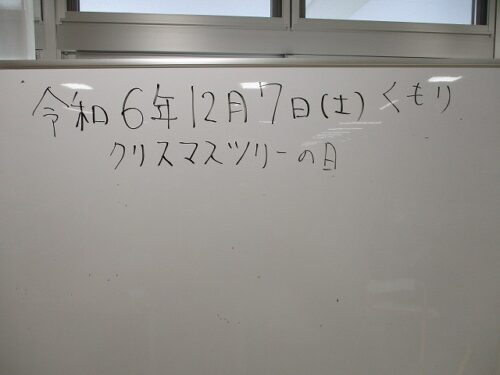 令和6年12月7日(土)くもり
クリスマスツリーの日